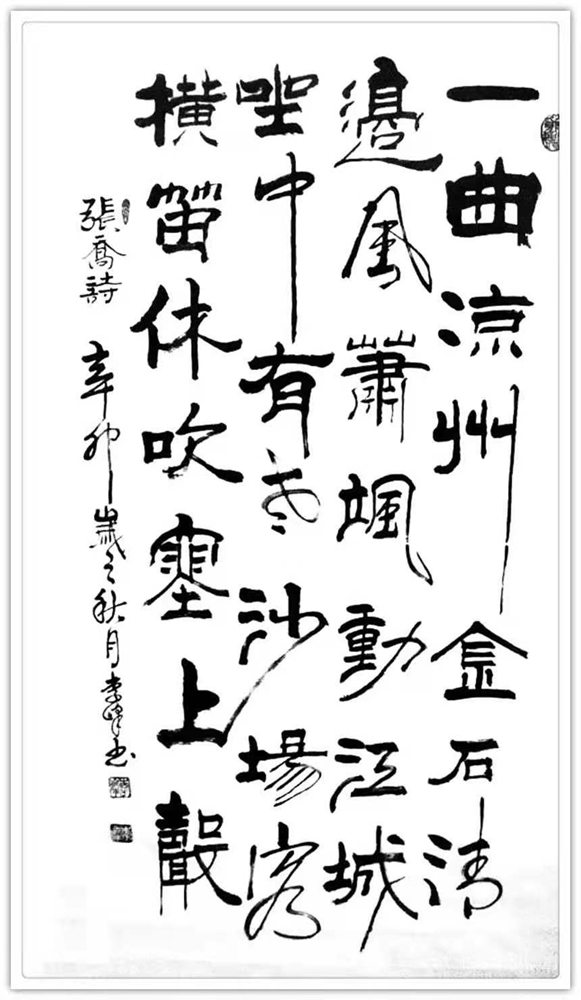 一曲凉州金石清
邊風蕭颯動江城
坐中有老沙場客
横笛休吹塞上聲
張喬詩 辛卯歲之秋月李峰书